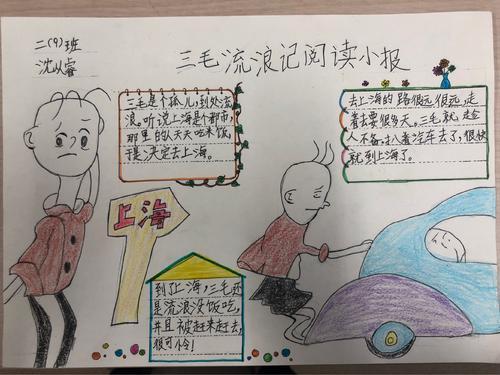 二(9)班
沈从睿
三毛流浪记阅读小报
三毛是个孤儿,到处流
浪。听说上海是个都市,
那里的人天天吃米饭,
于是决定去上海。
去上海的路很远很远,走
着去要很多天。三毛就趁
人不备,扒着汽车去了,很快
就到上海了。
上海
到了上海,三毛还
是流浪没饭吃,
并且被赶来赶去,
很可怜!